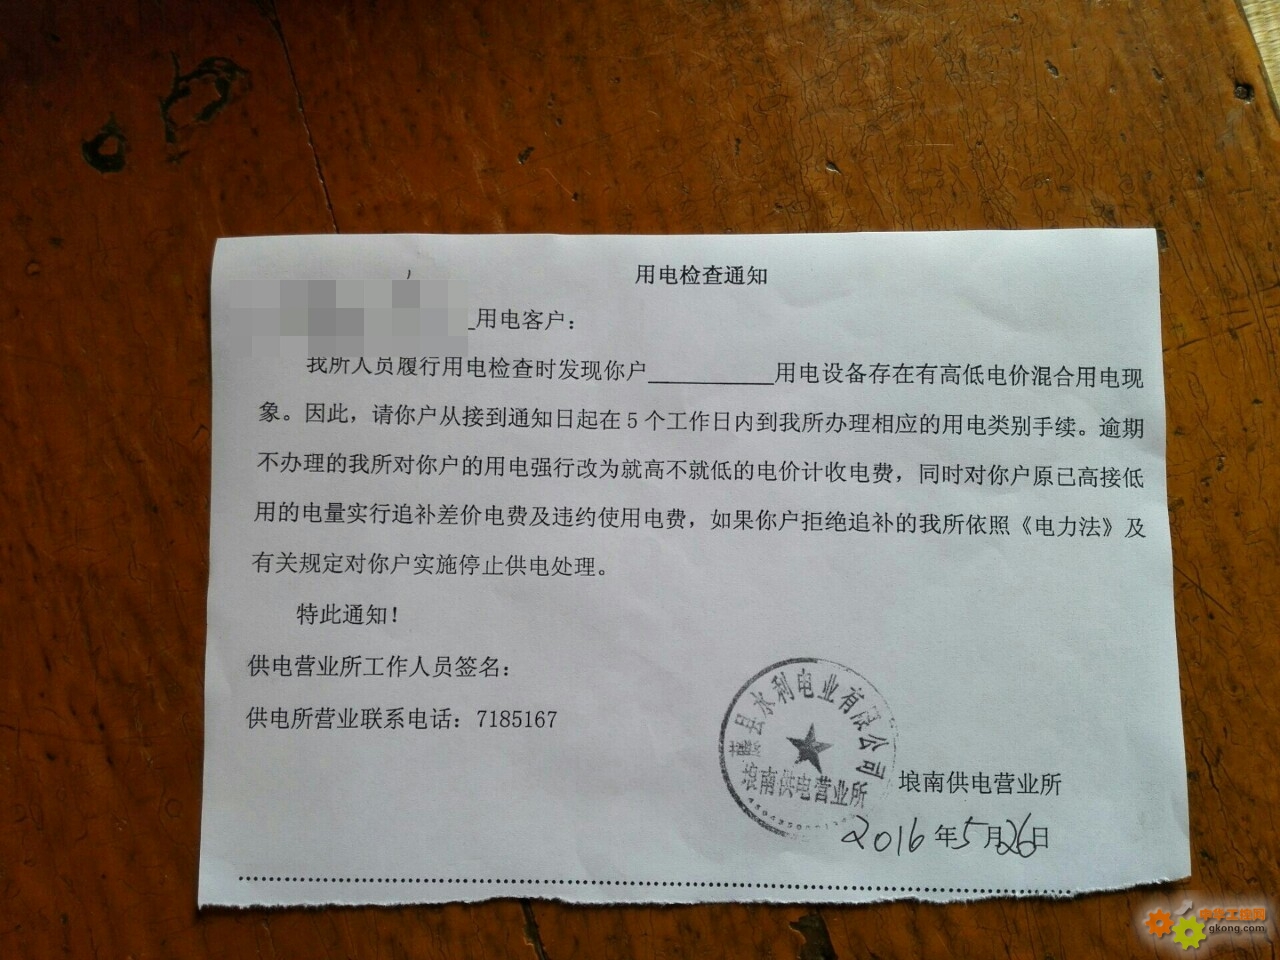 用电检查通知
用电客户：
我所人员履行用电检查时发现你户__________用电设备存在有高低电价混合用电现
象。因此，请你户从接到通知日起在5个工作日内到我所办理相应的用电类别手续。逾期
不办理的我所对你户的用电强行改为就高不就低的电价计收电费，同时对你户原已高接低
用的电量实行追补差价电费及违约使用电费，如果你户拒绝追补的我所依照《电力法》及
有关规定对你户实施停止供电处理。
特此通知！
供电营业所工作人员签名：
供电所营业联系电话：7185167
藤县水利电业有限公司
埌南供电营业所
埌南供电营业所
2016年5月26日
中华工控网
gkong.com